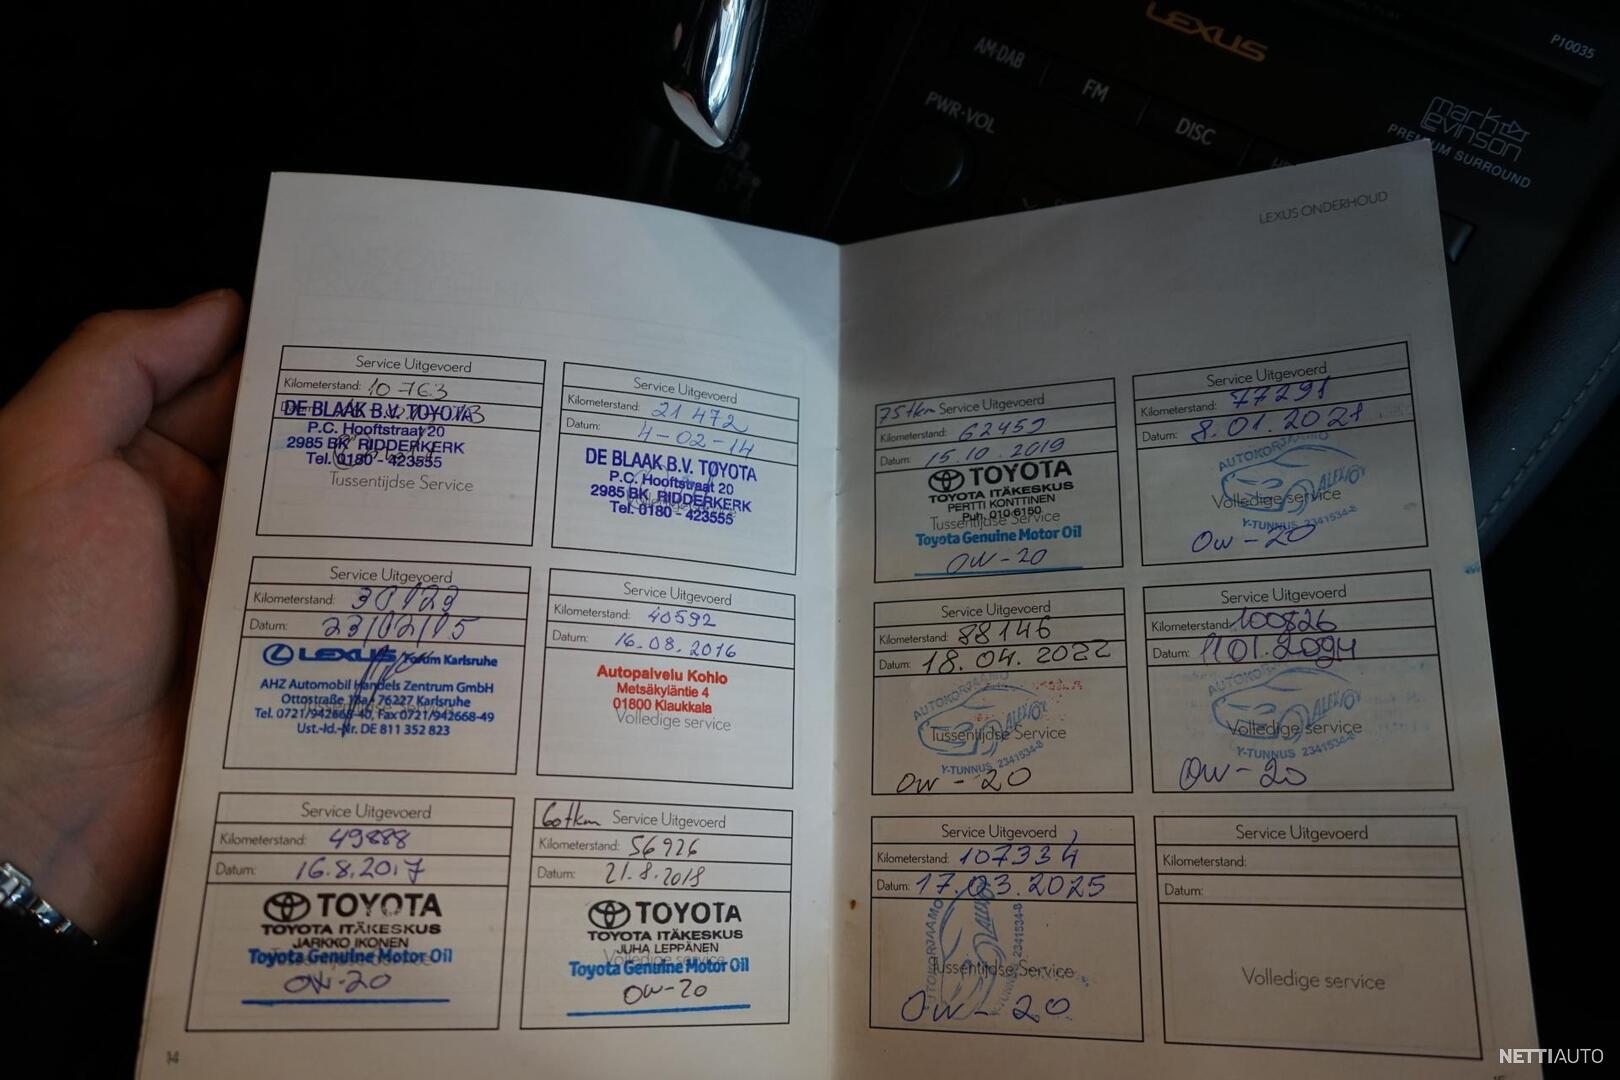 LEXUS
P10035
AM·DAB
FM
DISC
PWR·VOL
mark
Levinson
PREMIUM SURROUND
LEXUS ONDERHOUD
Service Uitgevoerd
Kilometerstand: 10 763
DE BLAAK B.V. TOYOTA
P.C. Hooftstraat 20
2985 BK RIDDERKERK
Tel. 0180 - 423555
Tussentijdse Service
Service Uitgevoerd
Kilometerstand: 21 472
Datum: 4-02-14
DE BLAAK B.V. TOYOTA
P.C. Hooftstraat 20
2985 BK RIDDERKERK
Tel. 0180 - 423555
Service Uitgevoerd
Kilometerstand: 30123
Datum: 23/02/15
LEXUS Forum Karlsruhe
AHZ Automobil Handels Zentrum GmbH
Ottostraße 18a / 76227 Karlsruhe
Tel. 0721/942668-40, Fax 0721/942668-49
Ust.-Id.-Nr. DE 811 352 823
Service Uitgevoerd
Kilometerstand: 40592
Datum: 16.08.2016
Autopalvelu Kohlo
Metsäkyläntie 4
01800 Klaukkala
Volledige service
Service Uitgevoerd
Kilometerstand: 49888
Datum: 16.8.2017
TOYOTA
TOYOTA ITÄKESKUS
JARKKO IKONEN
Toyota Genuine Motor Oil
0W-20
60tkm Service Uitgevoerd
Kilometerstand: 56926
Datum: 21.8.2018
TOYOTA
TOYOTA ITÄKESKUS
JUHA LEPPÄNEN
Volledige service
Toyota Genuine Motor Oil
0W-20
14
75tkm Service Uitgevoerd
Kilometerstand: 62459
Datum: 15.10.2019
TOYOTA
TOYOTA ITÄKESKUS
PERTTI KONTTINEN
Puh. 010 6150
Tussentijdse Service
Toyota Genuine Motor Oil
0W-20
Service Uitgevoerd
Kilometerstand: 77291
Datum: 8.01.2021
AUTOKORJAAMO
ALEXOY
Volledige service
Y-TUNNUS 2341534-8
0W-20
Service Uitgevoerd
Kilometerstand: 88146
Datum: 18.04.2022
AUTOKORJAAMO
ALEXOY
Tussentijdse Service
Y-TUNNUS 2341534-8
0W-20
Service Uitgevoerd
Kilometerstand: 100826
Datum:
AUTOKORJAAMO
ALEXOY
Volledige service
Y-TUNNUS 2341534-8
0W-20
Service Uitgevoerd
Kilometerstand: 107334
Datum: 17.03.2025
AUTOKORJAAMO
ALEXOY
2341534-8
Tussentijdse Service
0W-20
Service Uitgevoerd
Kilometerstand:
Datum:
Volledige service
NETTIAUTO